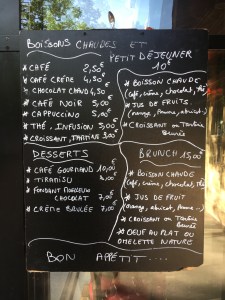 BOISSONS CHAUDES ET
PETIT DÉJEUNER
10€
* CAFÉ 2,50€
* CAFÉ CRÈME 4,50€
* CHOCOLAT CHAUD 4,50€
* CAFÉ NOIR 5,00€
* CAPPUCCINO 5,00€
* THÉ, INFUSION 5,00€
* CROISSANT, TARTINE 3,00€
* BOISSON CHAUDE
(café, crème, chocolat, thé)
* JUS DE FRUITS.
(orange, ananas, abricot..)
* CROISSANT ou Tartine
Beurrée
DESSERTS
* CAFÉ GOURMAND 10,00€
* TIRAMISU
* FONDANT MOELLEUX
CHOCOLAT 7,00€
* CRÈME BRULÉE 7,00€
BRUNCH 15,00€
* BOISSON CHAUDE
(café, crème, chocolat, thé)
* JUS DE FRUIT
(orange, abricot,
* CROISSANT ou Tartine
Beurrée
* OEUF AU PLAT OU
OMELETTE NATURE
BON APPÉTIT....